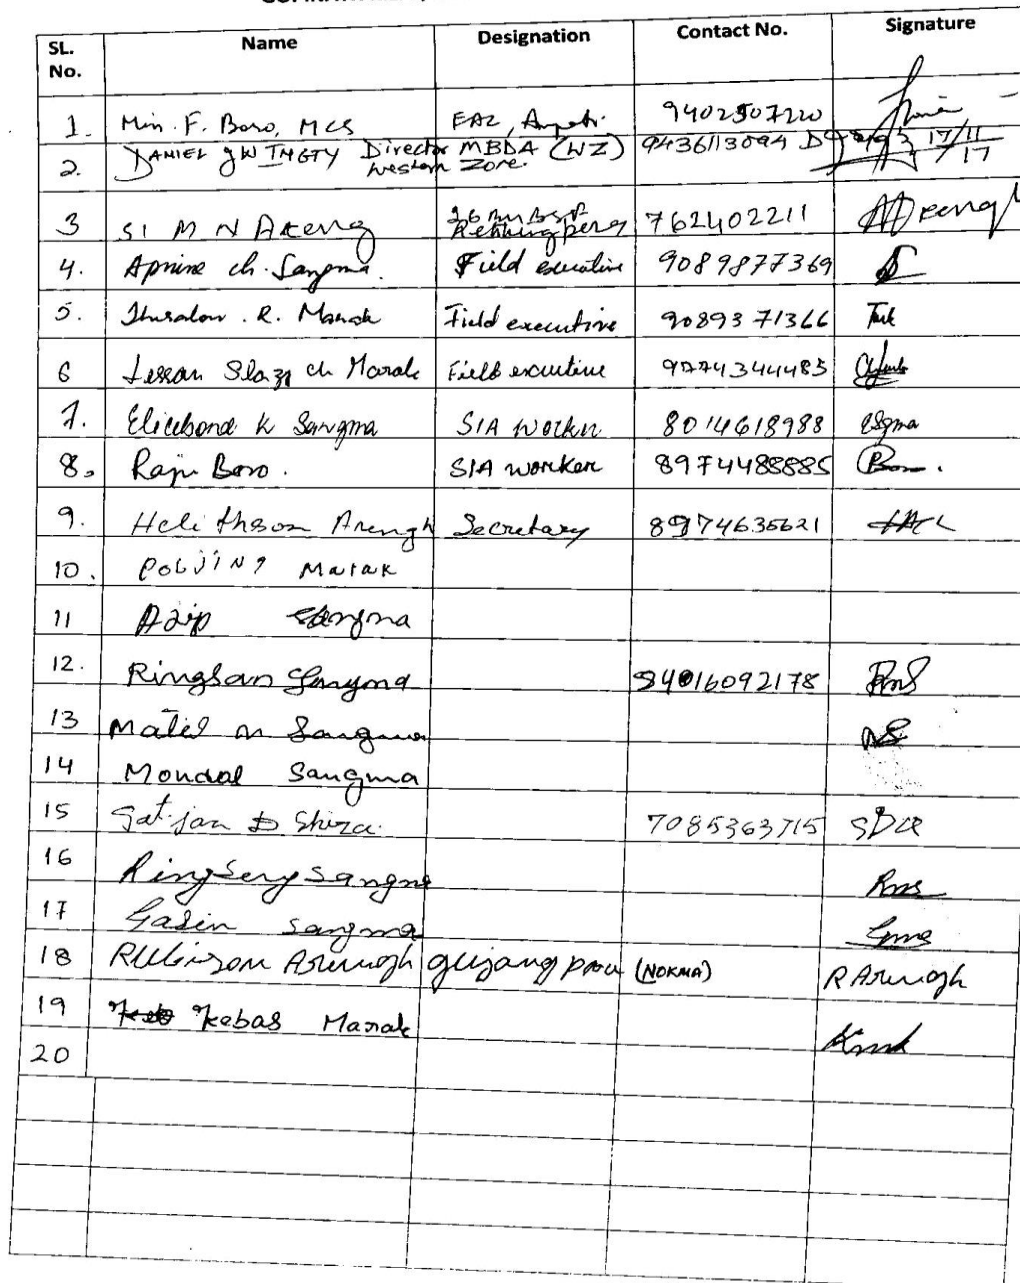 SL. No. Name Designation Contact No. Signature
1. Min. F. Boro, MCS EAC, Ampati. 9402507220
2. DANIEL J W INGTY Director MBDA (WZ) Western Zone. 9436113094 17/11/17
3 SI M N Areng 762402211
4. Apnine ch. Sangma. Field executive 9089877369
5. R. Marak Field executive 9089371366
6 ch Marak Field executive 97743444483
7. Elicebond K Sangma SIA worker 8014618988 ESgma
8. Raju Boro. SIA worker 8974488885 Boro.
9. Helithson Arengh Secretary 8974636621
10. Marak
11 Sangma
12. Ringsan Sangma 94016092178 RmS
13 Matil m Sangma
14 Mondal Sangma
15 Gatjan D Shira. 7085363715
16 Ringseng Sangma Rms
17 Gasin Sangma Gms
18 Rubinson Arengh gujangpara (NOKMA) R Arengh
19 Kebas Marak Kmk
20